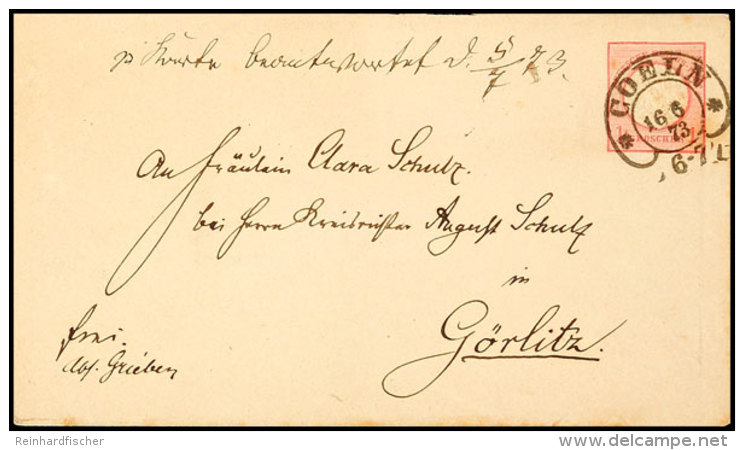 p Karte beantwortet d. 5/7 73.
COELN
16 6
73
6-7
GROSCHEN
An Fräulein Clara Schulz.
bei Herrn Kreisrichter August Schulz
in
Görlitz.
frei.
Abs. Grieben
Reinhardfischer
www.delcampe.net